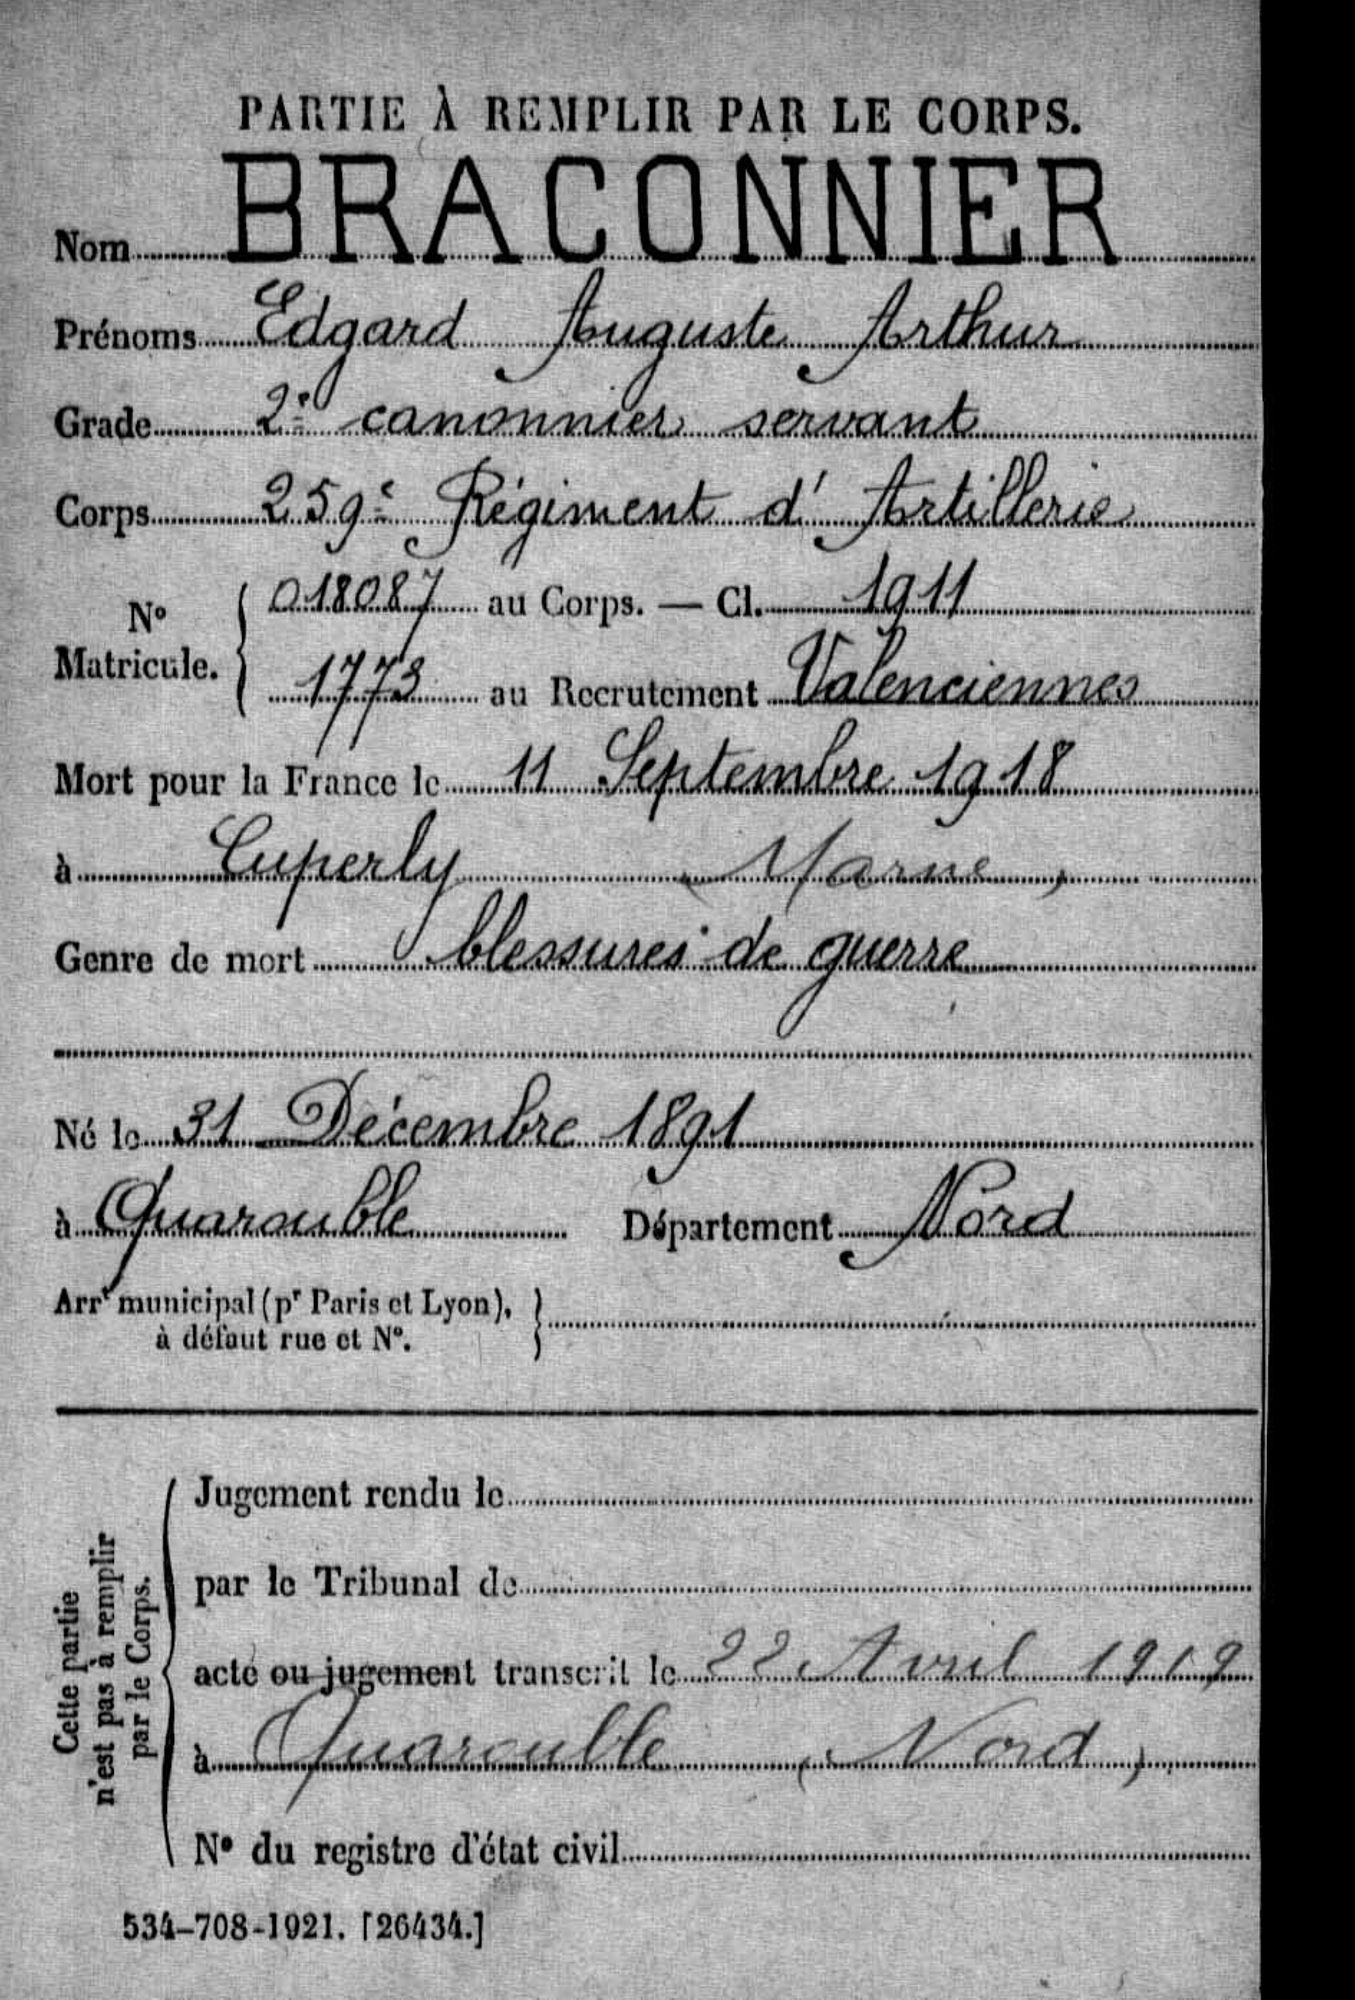 PARTIE À REMPLIR PAR LE CORPS.
Nom BRACONNIER
Prénoms Edgard Auguste Arthur
Grade 2e canonnier servant
Corps 259e Régiment d'Artillerie
No Matricule. { 018087 au Corps. — Cl. 1911
1773 au Recrutement Valenciennes
Mort pour la France le 11 Septembre 1918
à Cuperly (Marne)
Genre de mort blessures de guerre
Né le 31 Décembre 1891
à Quarouble Département Nord
Arrt municipal (pr Paris et Lyon), }
à défaut rue et No.
Cette partie
n'est pas à remplir
par le Corps.
Jugement rendu le
par le Tribunal de
acte ou jugement transcrit le 22 Avril 1919
à Quarouble (Nord)
No du registre d'état civil
534-708-1921. [26434.]